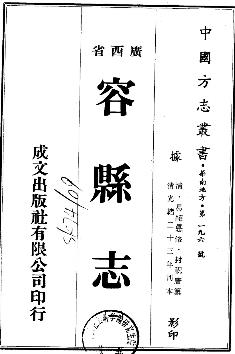 中國方志叢書·華南地方·第一九六號
據清·易紹悳修·封祝唐纂
清光緒二十三年刊本
影印
廣西省
容縣志
成文出版社有限公司印行